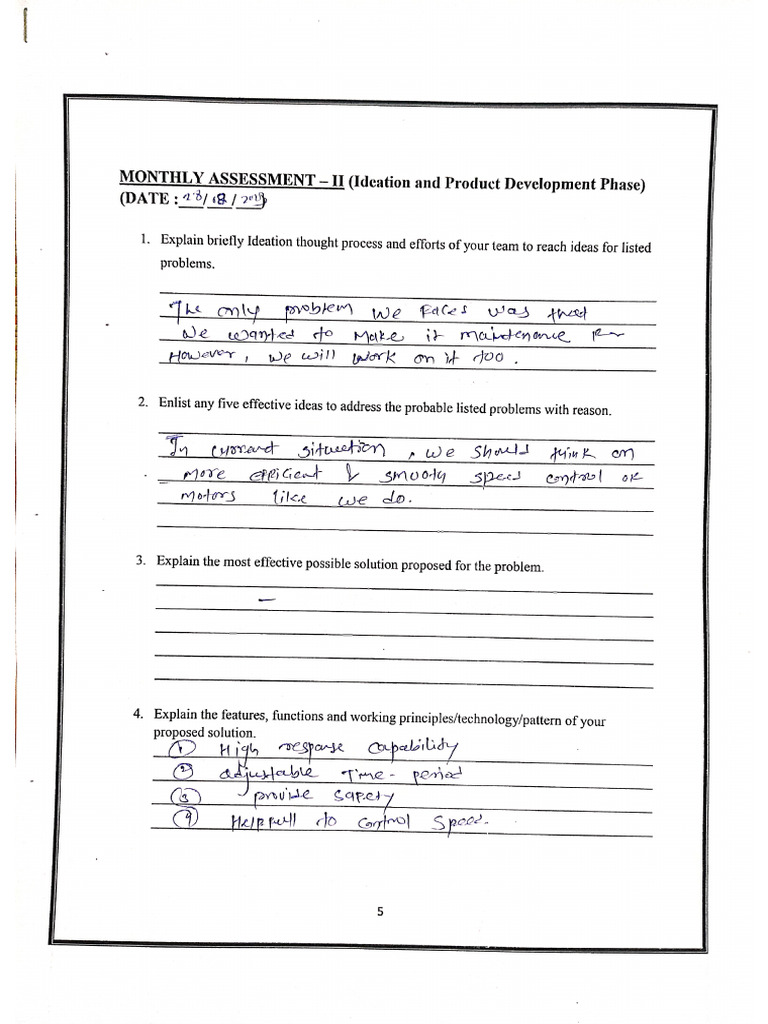 MONTHLY ASSESSMENT – II (Ideation and Product Development Phase)
(DATE : 28/18/2018)
1. Explain briefly Ideation thought process and efforts of your team to reach ideas for listed
problems.
The only problem we faces was that
we wanted to make it maintenance
However, we will work on it too.
2. Enlist any five effective ideas to address the probable listed problems with reason.
In current situation, we should think on
more efficient & smooth speed control of
motors like we do.
3. Explain the most effective possible solution proposed for the problem.
–
4. Explain the features, functions and working principles/technology/pattern of your
proposed solution.
① High response capability
② adjustable Time-period
③ provide safety
④ Helpfull to control speed.
5